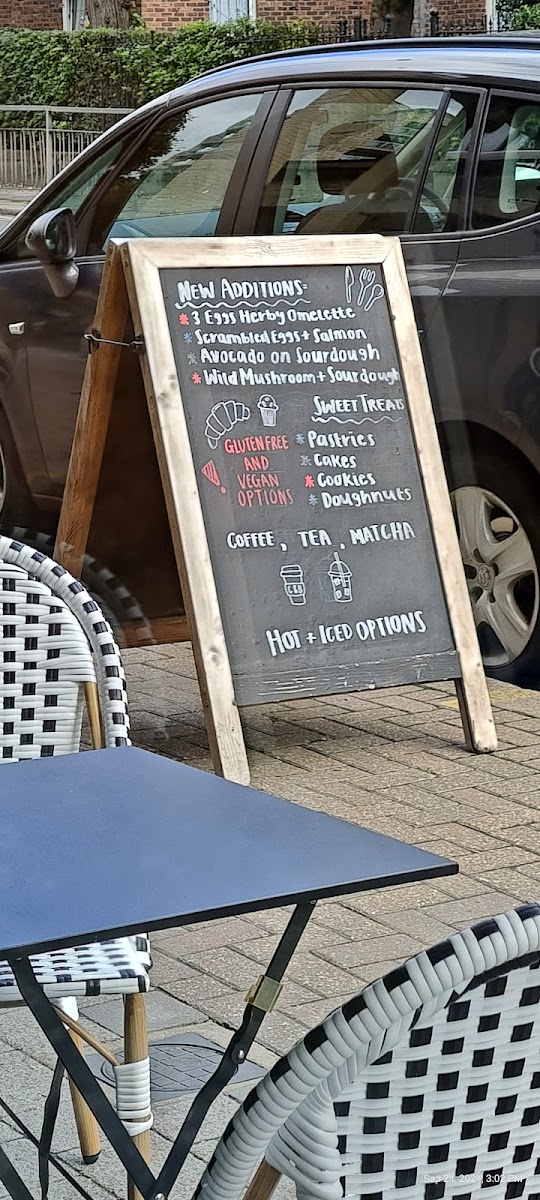 NEW ADDITIONS:
* 3 Eggs Herby Omelette
* Scrambled Eggs + Salmon
* Avocado on Sourdough
* Wild Mushroom + Sourdough
SWEET TREATS
GLUTEN FREE
AND
VEGAN
OPTIONS
* Pastries
* Cakes
* Cookies
* Doughnuts
COFFEE, TEA, MATCHA
HOT + ICED OPTIONS
Sep 24, 2024, 3:02 PM